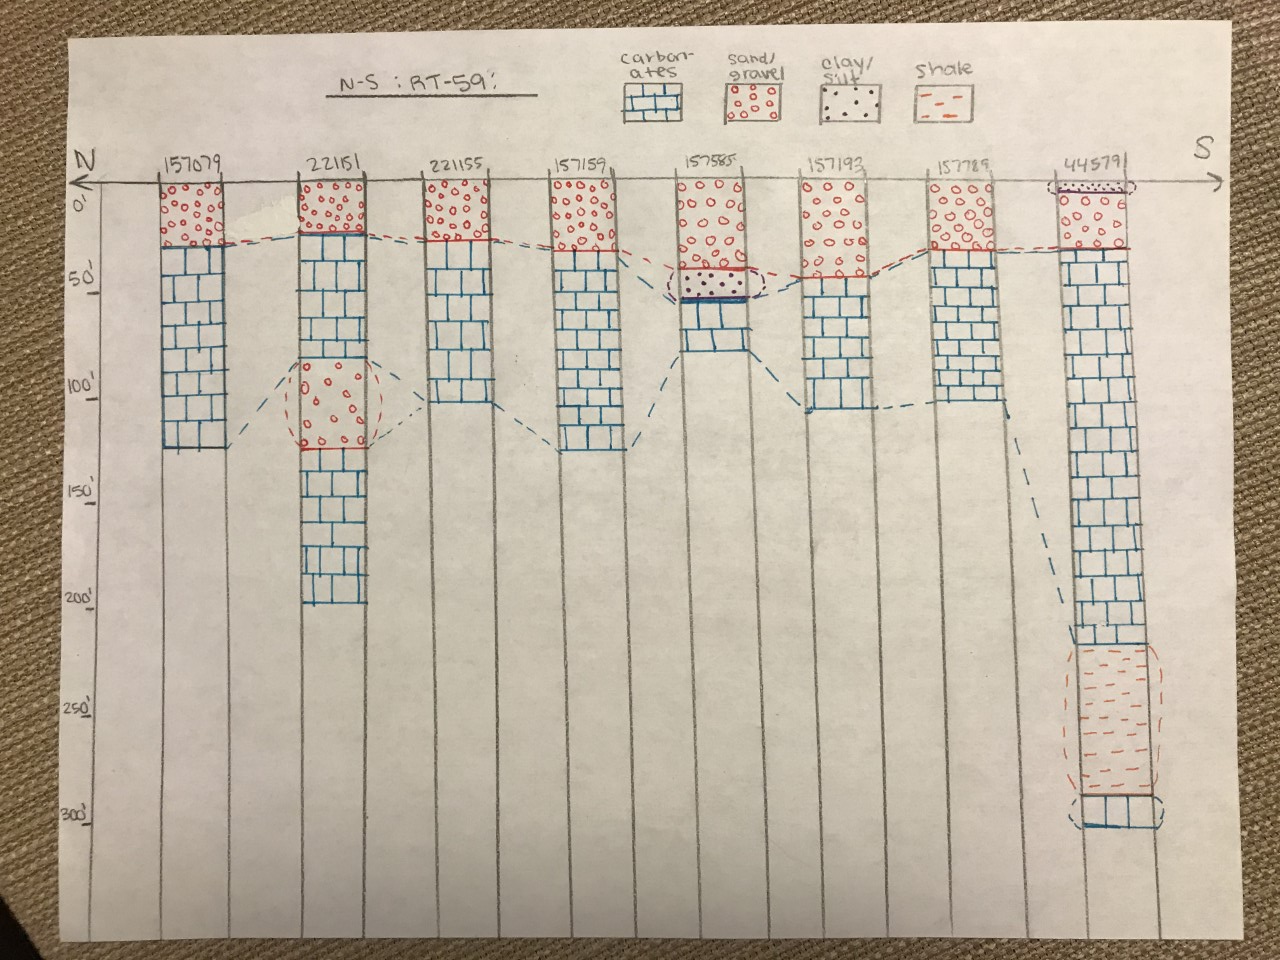 N-S : RT-59:
carbon-
ates
sand/
gravel
clay/
silt
shale
N
S
157079
22151
221155
157159
157585
157193
157789
44579
0'
50'
100'
150'
200'
250'
300'